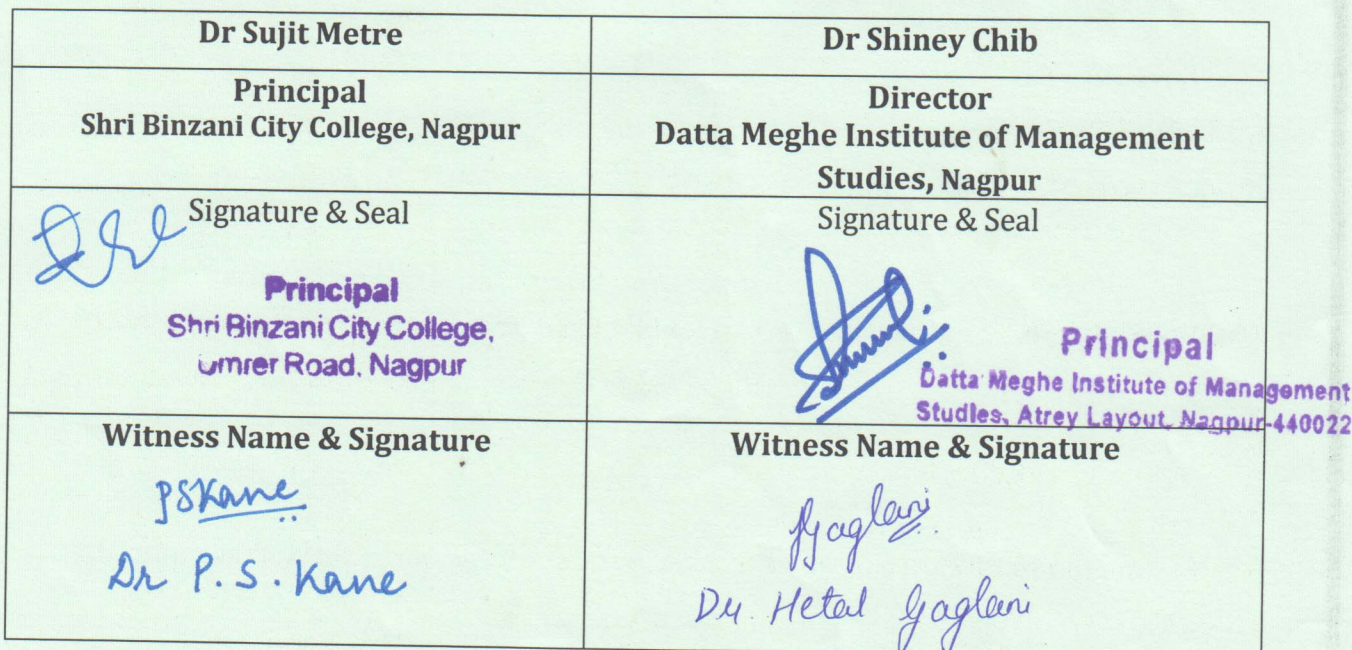 Dr Sujit Metre
Dr Shiney Chib
Principal
Shri Binzani City College, Nagpur
Director
Datta Meghe Institute of Management
Studies, Nagpur
Signature & Seal
Principal
Shri Binzani City College,
Umrer Road, Nagpur
Signature & Seal
Principal
Datta Meghe Institute of Management
Studies, Atrey Layout, Nagpur-440022
Witness Name & Signature
PSKane
Dr P. S. Kane
Witness Name & Signature
Gaglani
Dr. Hetal Gaglani